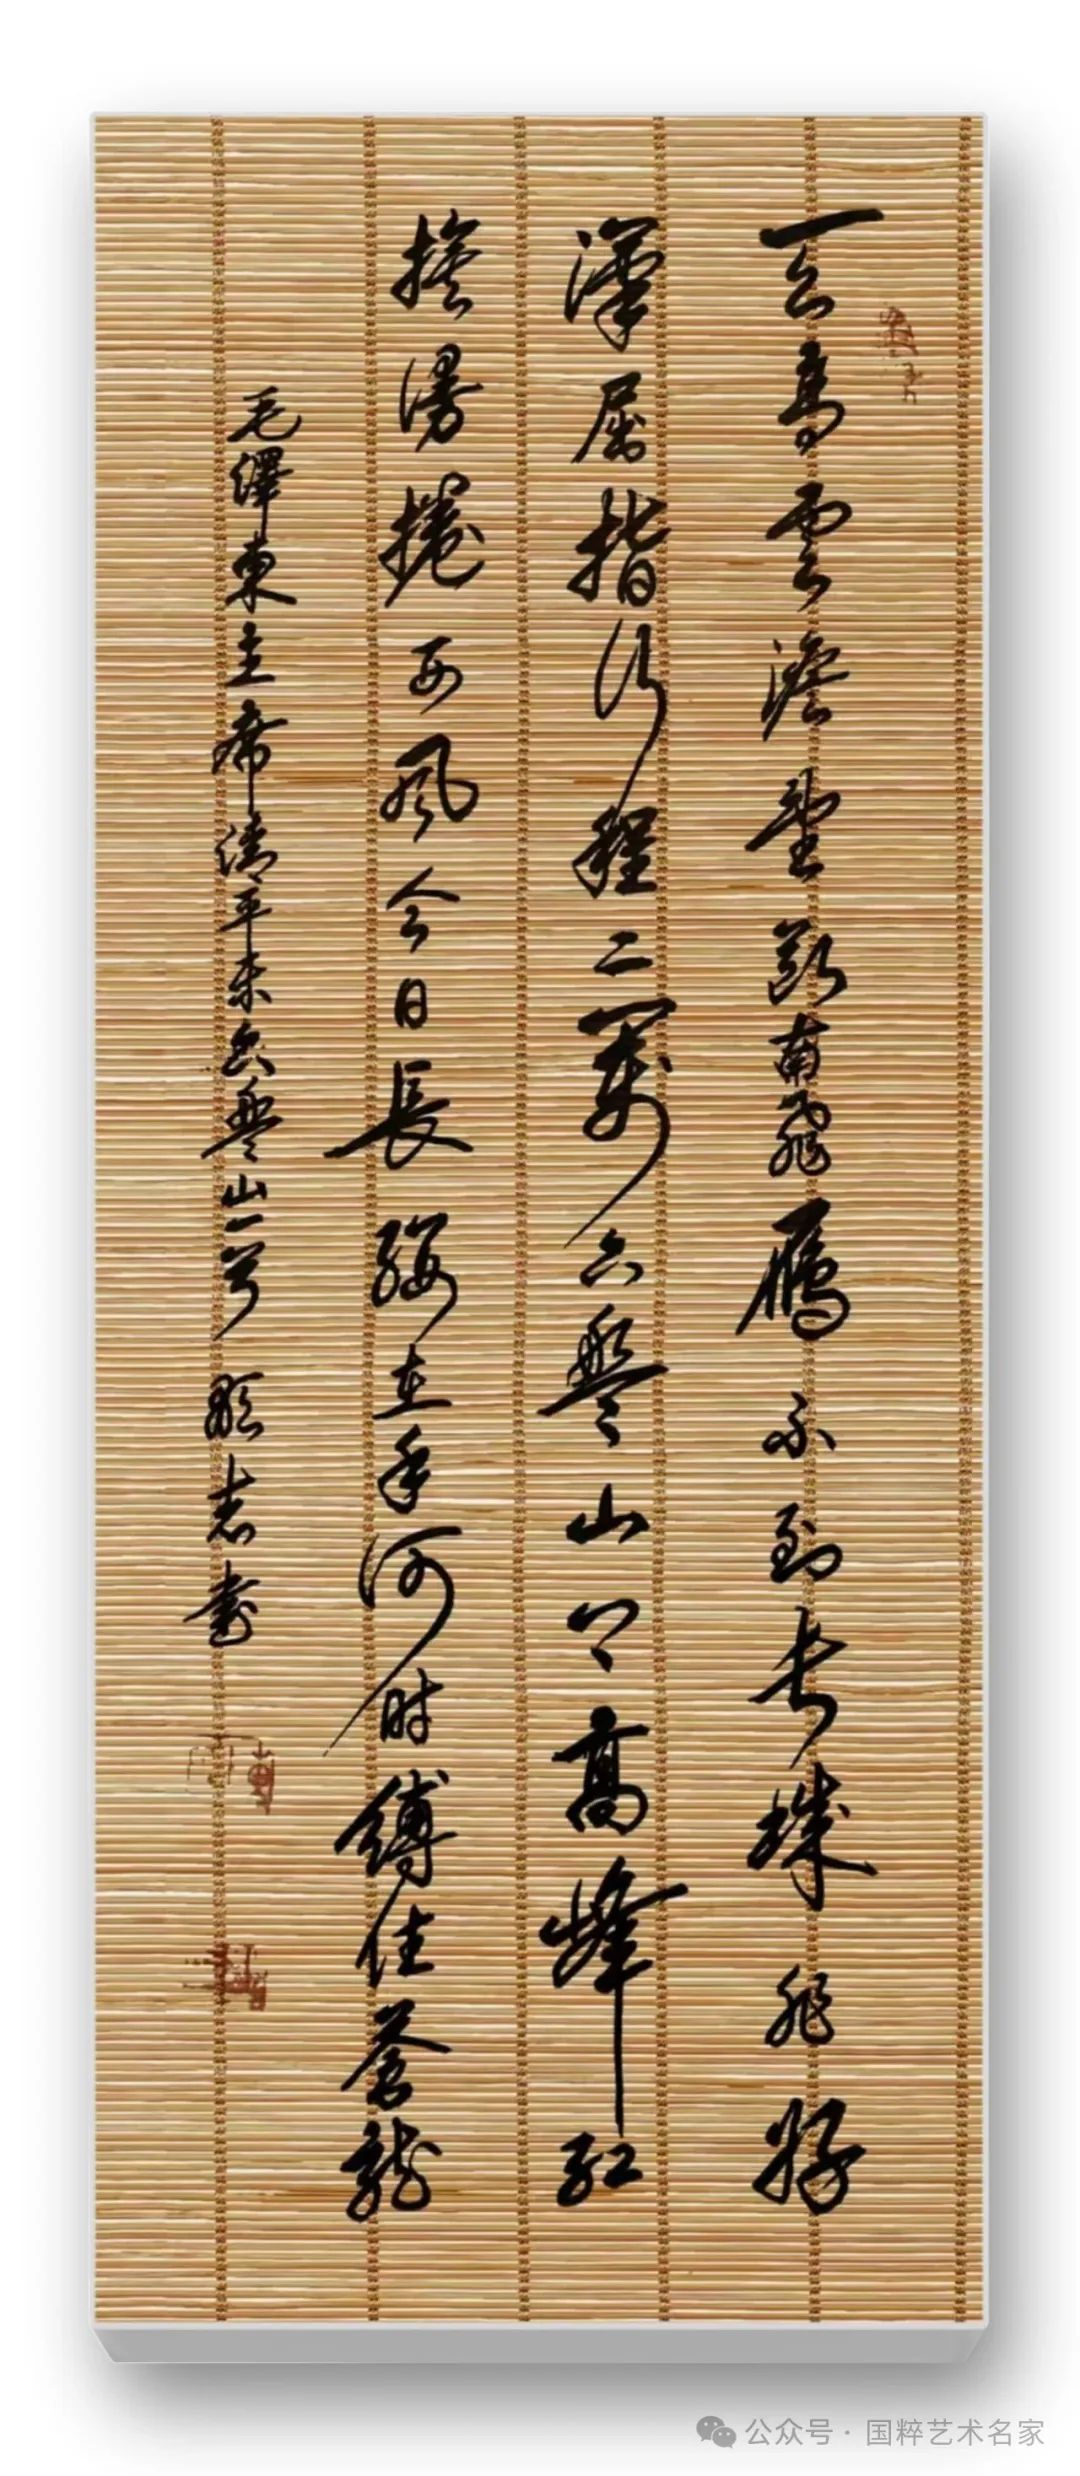 天高雲澹望斷南飛雁不到長城非好
漢屈指行程二萬六盤山上高峰紅
旗漫捲西風今日長纓在手何時縛住蒼龍
毛澤東主席清平樂六盤山一首 志書
公众号 · 国粹艺术名家